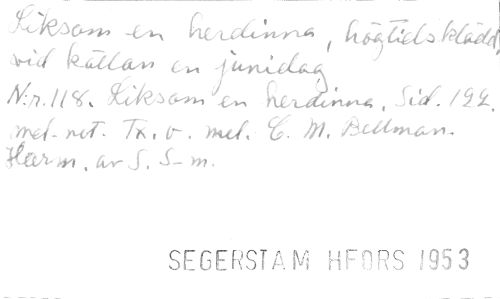 Liksom en herdinna, högtidsklädd,
vid källan en junidag
N:r. 118. Liksom en herdinna. Sid. 192.
mel.-not. Tx. o. mel. C. M. Bellman.
Harm. av S. S-m.
SEGERSTAM HFORS 1953